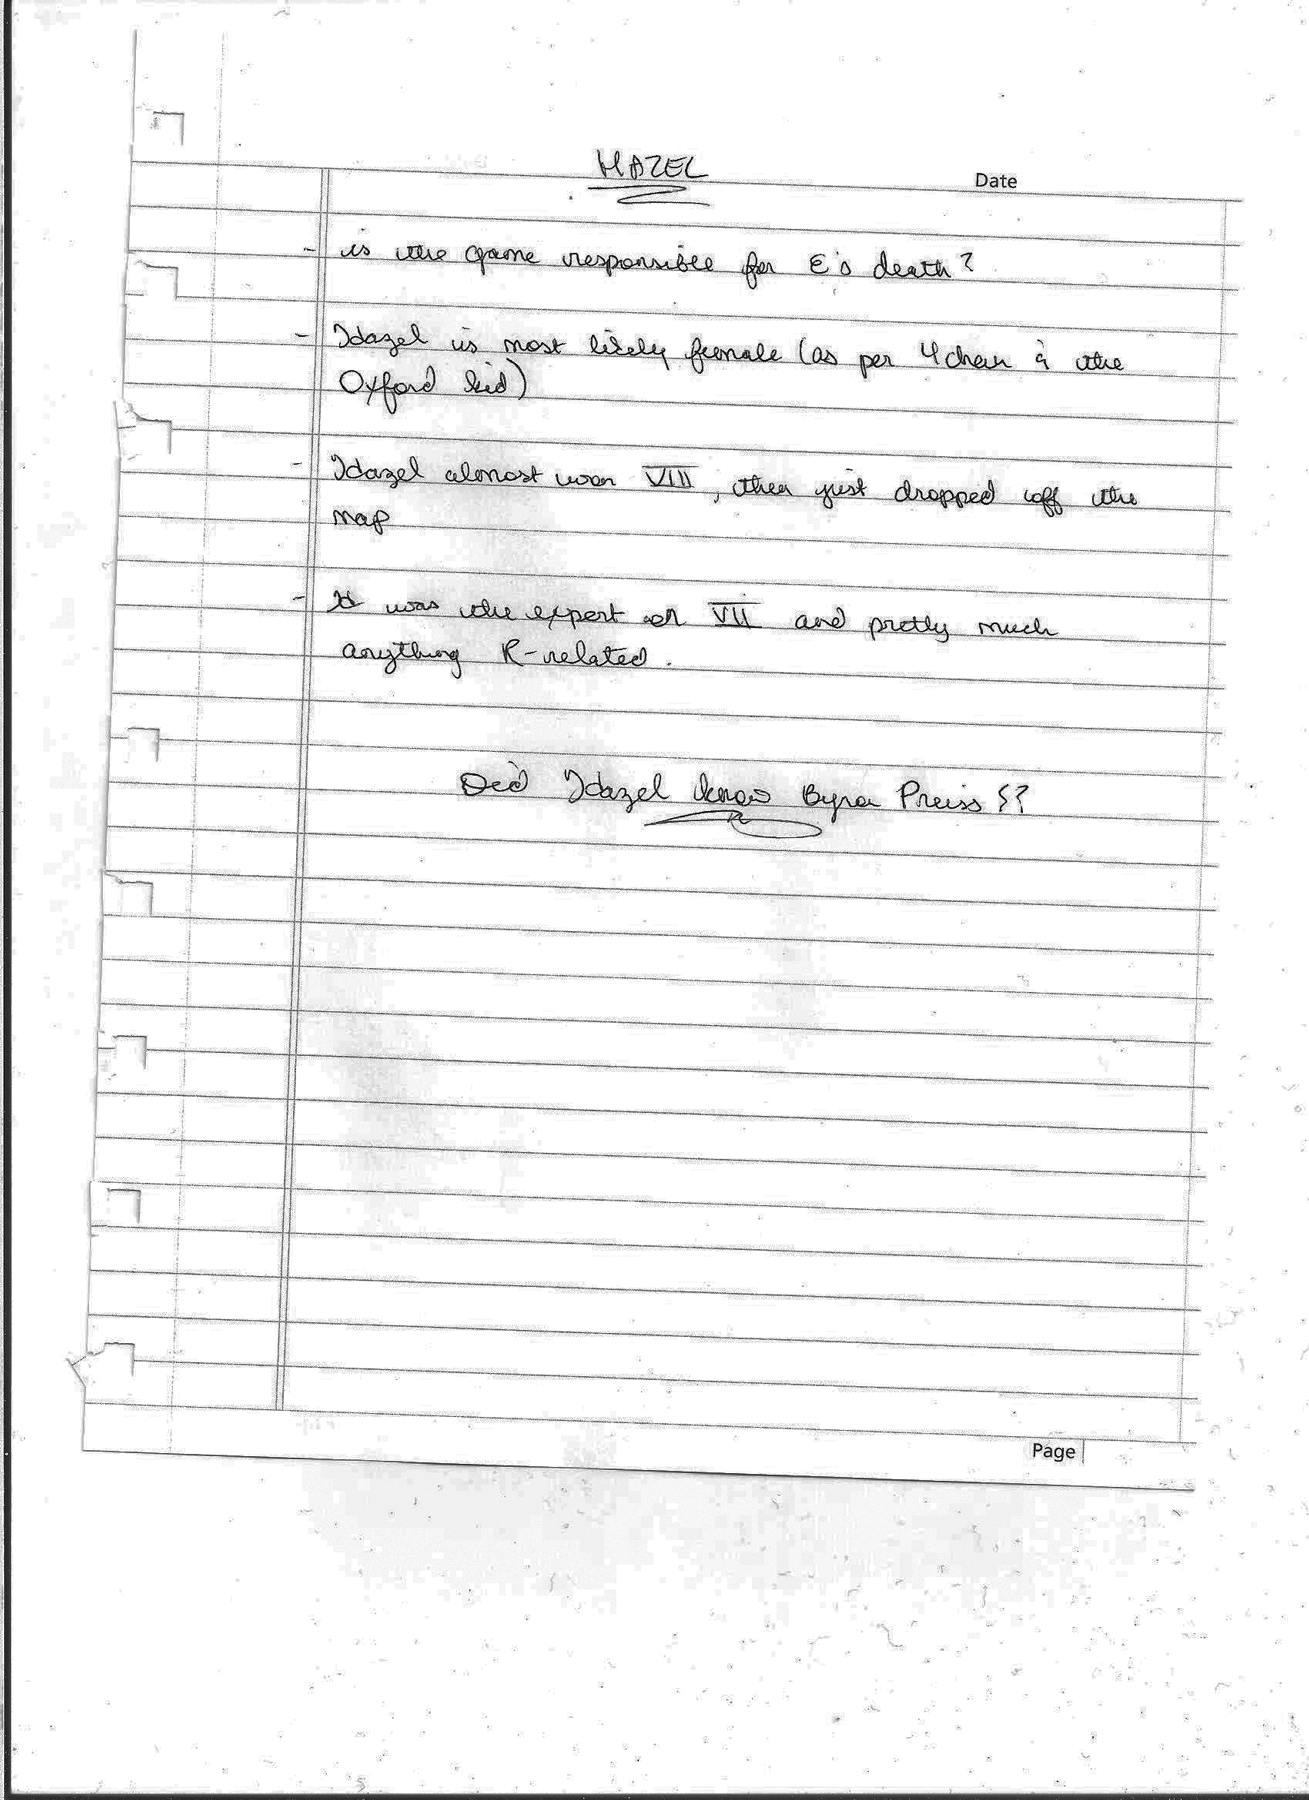 HAZEL
Date
- is the game responsible for E's death?
- Hazel is most likely female (as per 4chan & the
Oxford kid)
- Hazel almost won VIII, then just dropped off the
map
- H was the expert on VII and pretty much
anything R-related.
Did Hazel know Byron Preiss??
Page